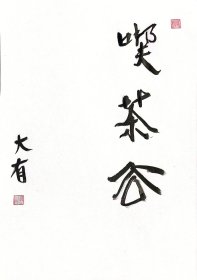 喫茶去
大有